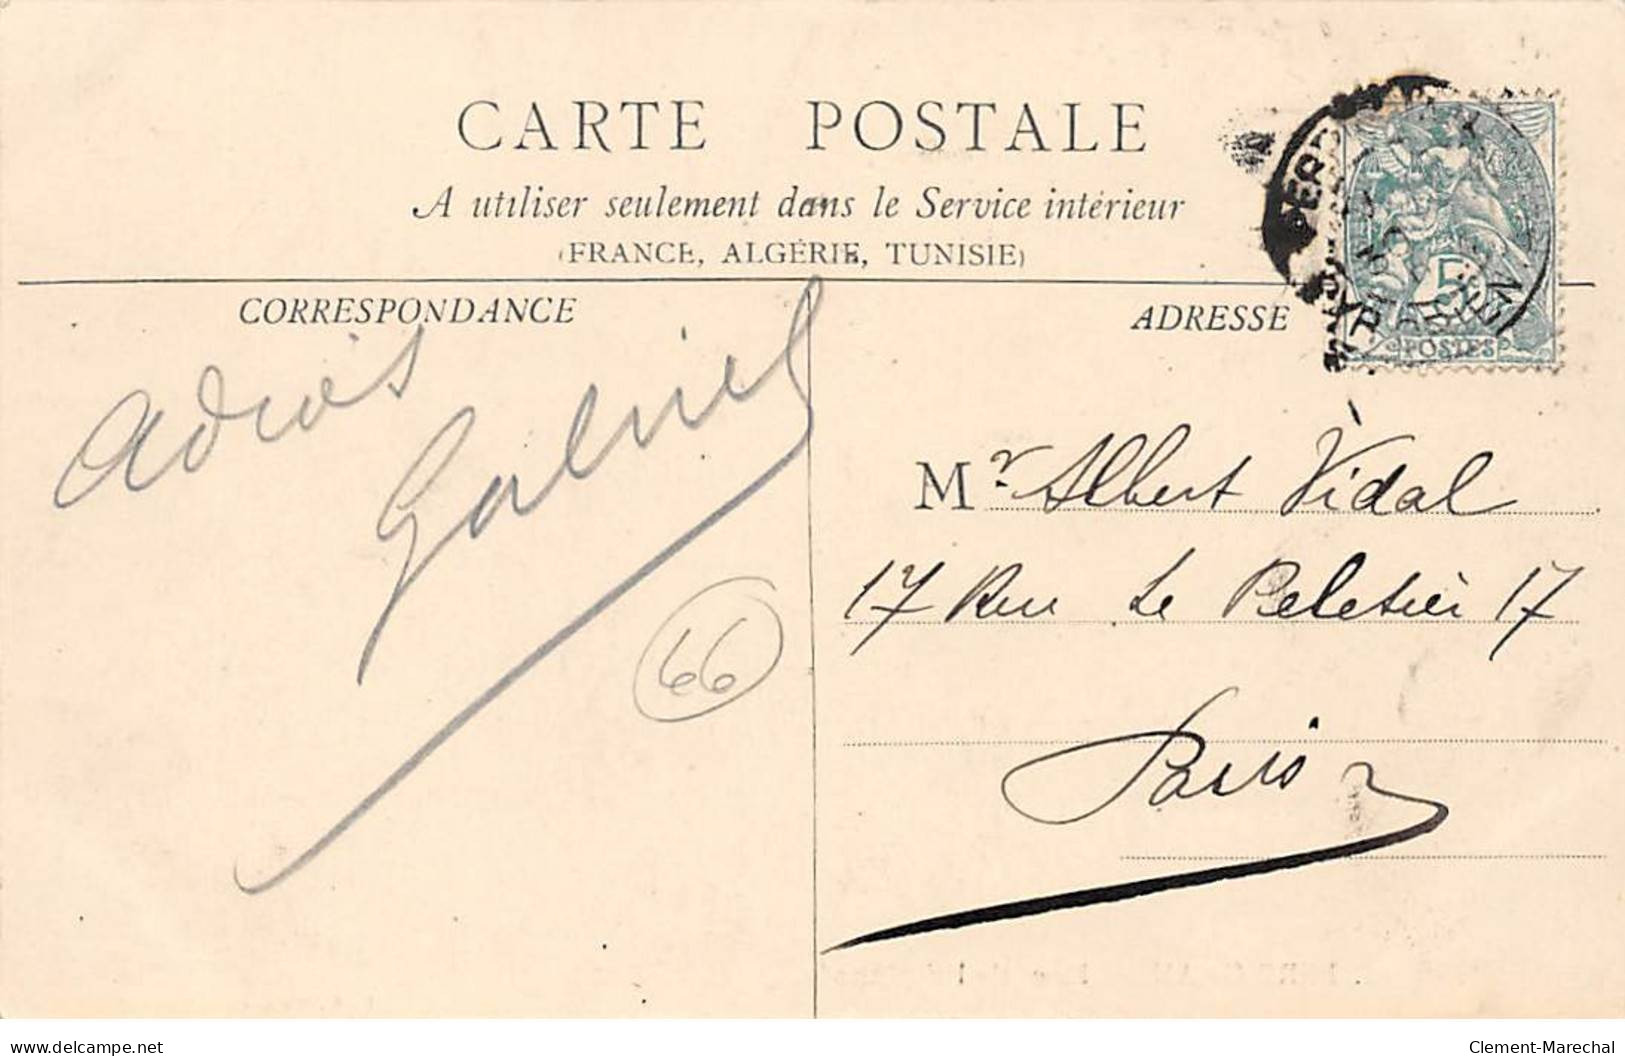 CARTE POSTALE
A utiliser seulement dans le Service intérieur
(FRANCE, ALGÉRIE, TUNISIE)
CORRESPONDANCE
ADRESSE
5
POSTES
Gabriel
66
Mr Albert Vidal
17 Rue Le Peletier 17
Paris
www.delcampe.net
Clement-Marechal